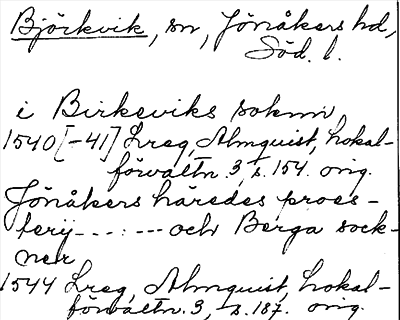 Björkvik, sn, Jönåkers hd,
Söd. l.
i Birkeviks soknn
1540[-41] Lreg, Almquist, Lokal-
förvaltn. 3, s. 154. orig.
Jönåkers häredes proes-
terij - - - : - - - och Berga sock-
ner
1544 Lreg, Almquist, Lokal-
förvaltn. 3, s. 187. orig.